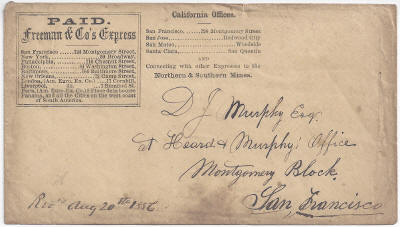 PAID.
Freeman & Co's Express
San Francisco, 124 Montgomery Street,
New York, 59 Broadway,
Philadelphia, 116 Chesnut Street,
Boston, 84 Washington Street,
Baltimore, 164 Baltimore Street,
New Orleans, 72 Camp Street,
London, (Am. Euro. Ex. Co.) 17 Cornhill,
Liverpool, do. 7 Rumford St.
Paris, (Am. Euro. Ex. Co.) 8 Place de la bourse
Panama, and all the Cities on the west coast
of South America.
California Offices.
San Francisco, 124 Montgomery Street
San Jose, Redwood City
San Mateo, Woodside
Santa Clara, San Quentin
AND
Connecting with other Expresses to the
Northern & Southern Mines.
D J Murphy Esq.
at Heard & Murphy's Office
Montgomery Block.
San, Francisco
Rec'd Aug 20th 1856